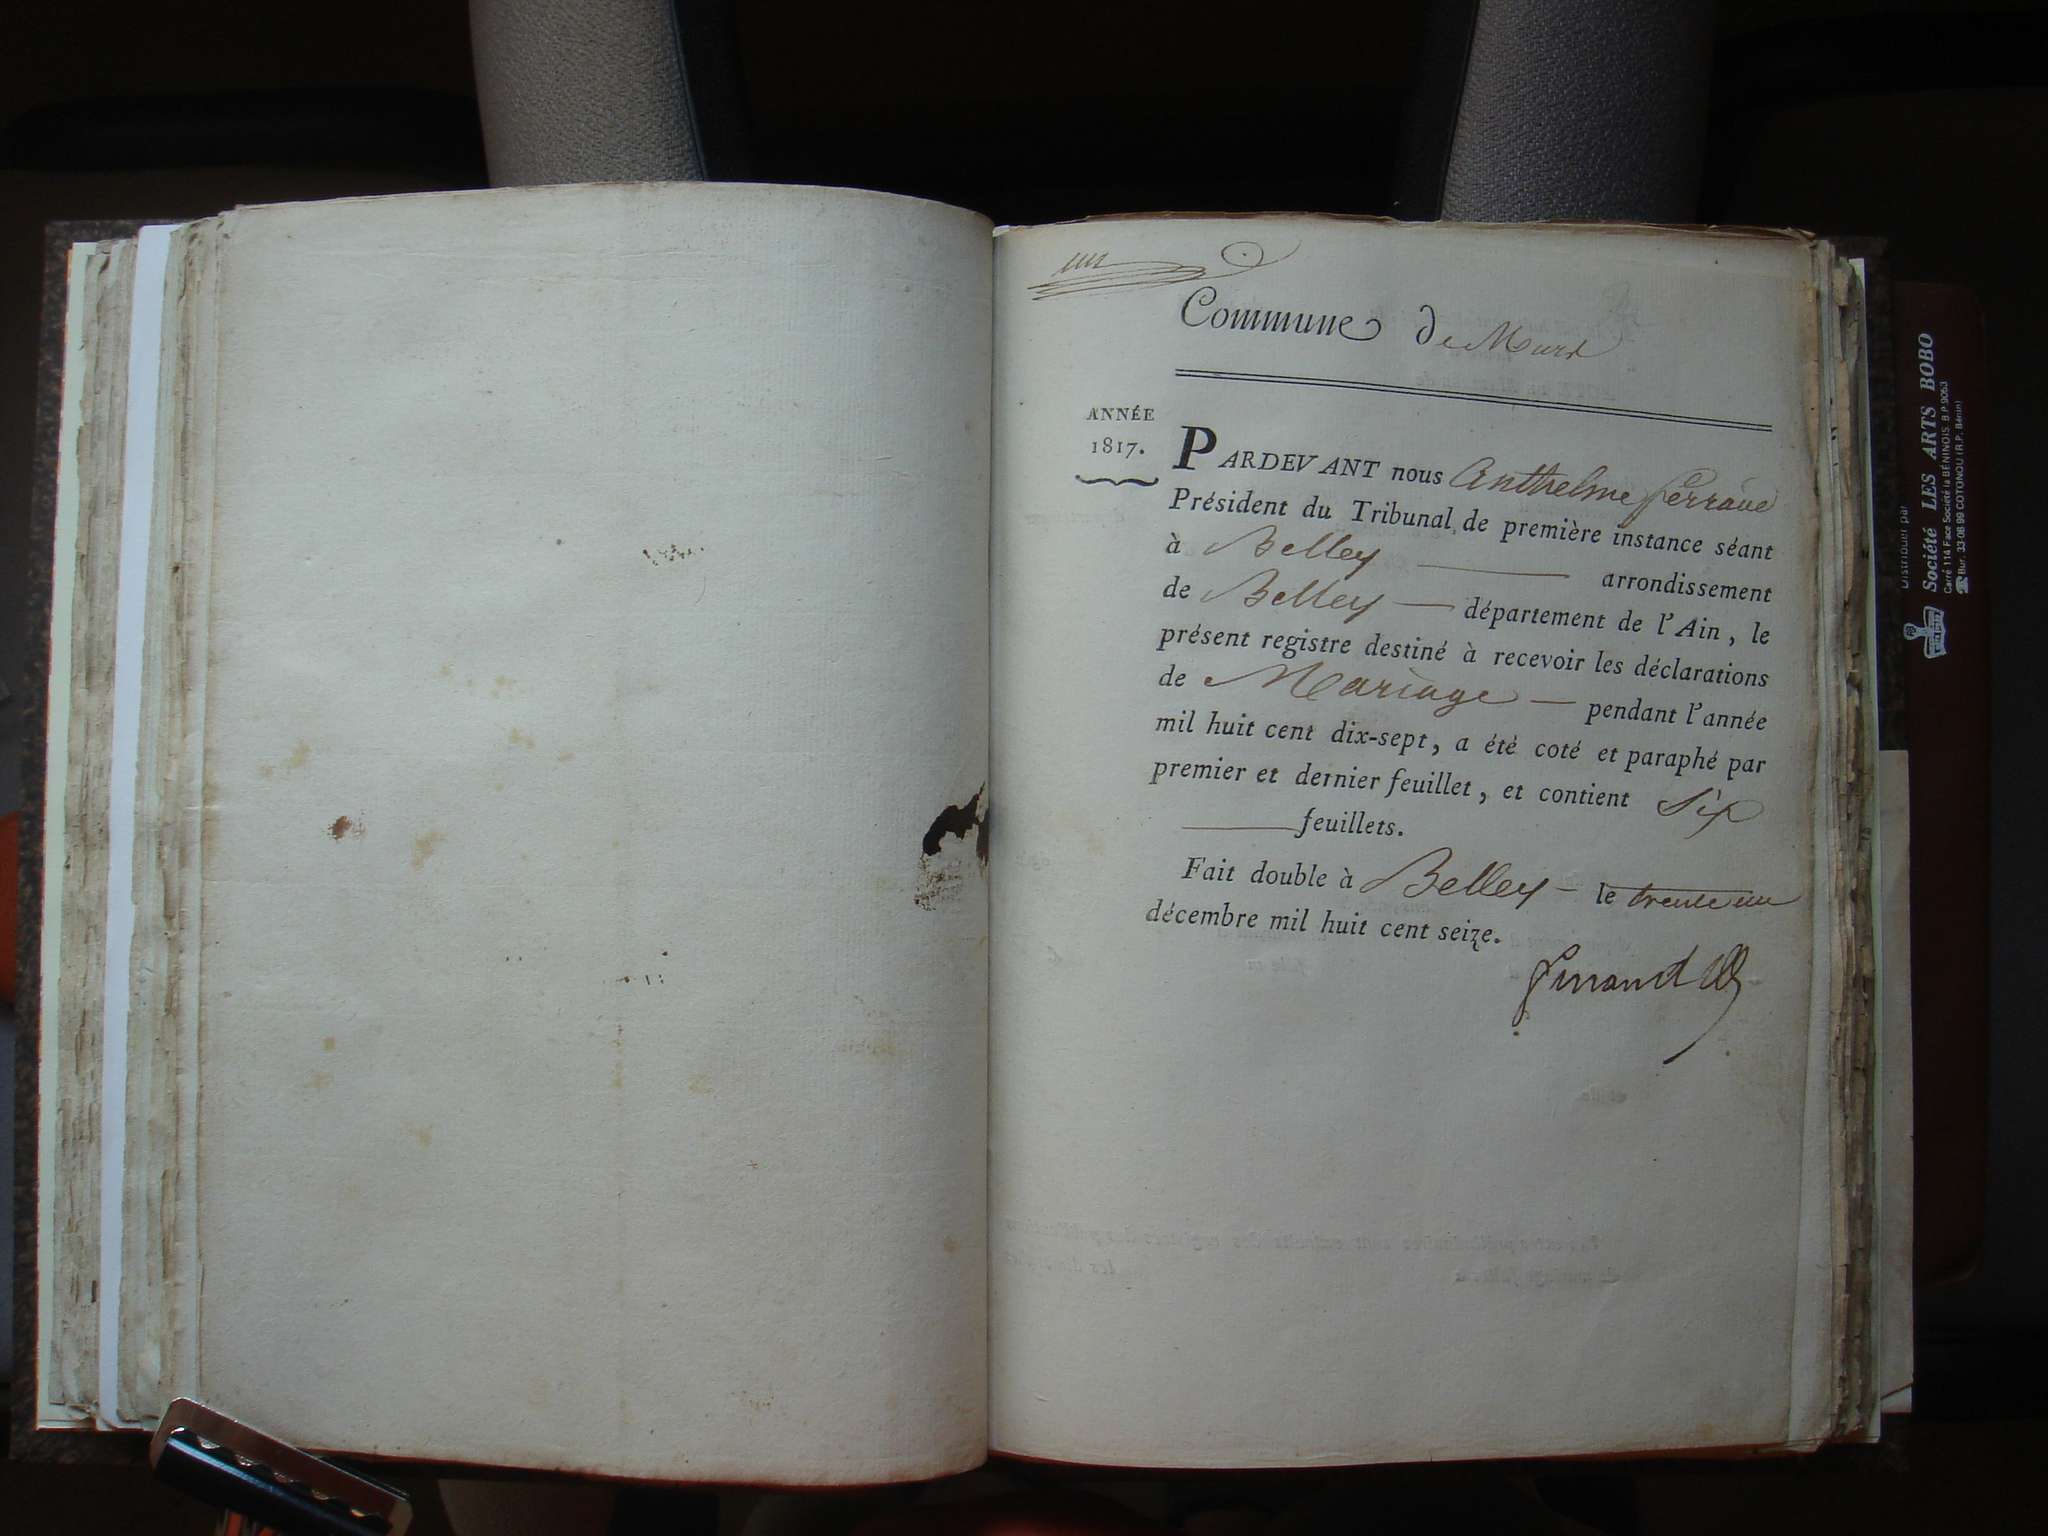 un
Commune de Murs
ANNÉE
1817.
PARDEVANT nous Anthelme ferrand
Président du Tribunal de première instance séant
à Belley arrondissement
de Belley département de l'Ain, le
présent registre destiné à recevoir les déclarations
de Mariage pendant l'année
mil huit cent dix-sept, a été coté et paraphé par
premier et dernier feuillet, et contient Six
feuillets.
Fait double à Belley le trente un
décembre mil huit cent seize.
Distribuer par
Société LES ARTS BOBO
Carré 114 Face Société la BÉNINOIS B.P. 9063
Bur. 33-08 99 COTONOU (R.P. Bénin)